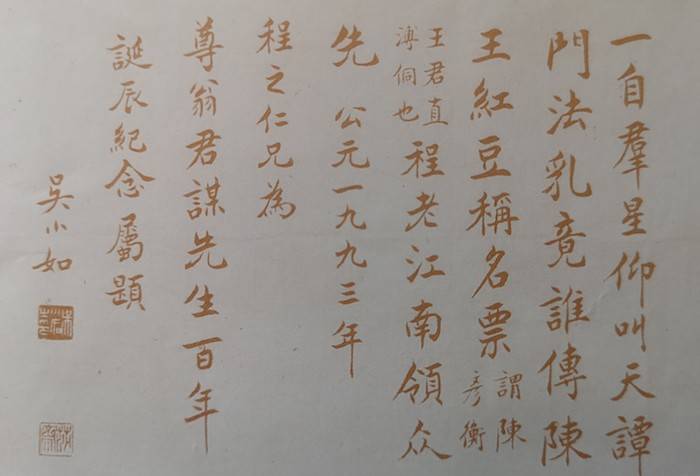 一自羣星仰叫天譚
門法乳竟誰傳陳
王紅豆稱名票
謂陳
彥衡
王君直
溥侗也
程老江南領众
先 公元一九九三年
程之仁兄為
尊翁君謀先生百年
誕辰紀念屬題
吳小如